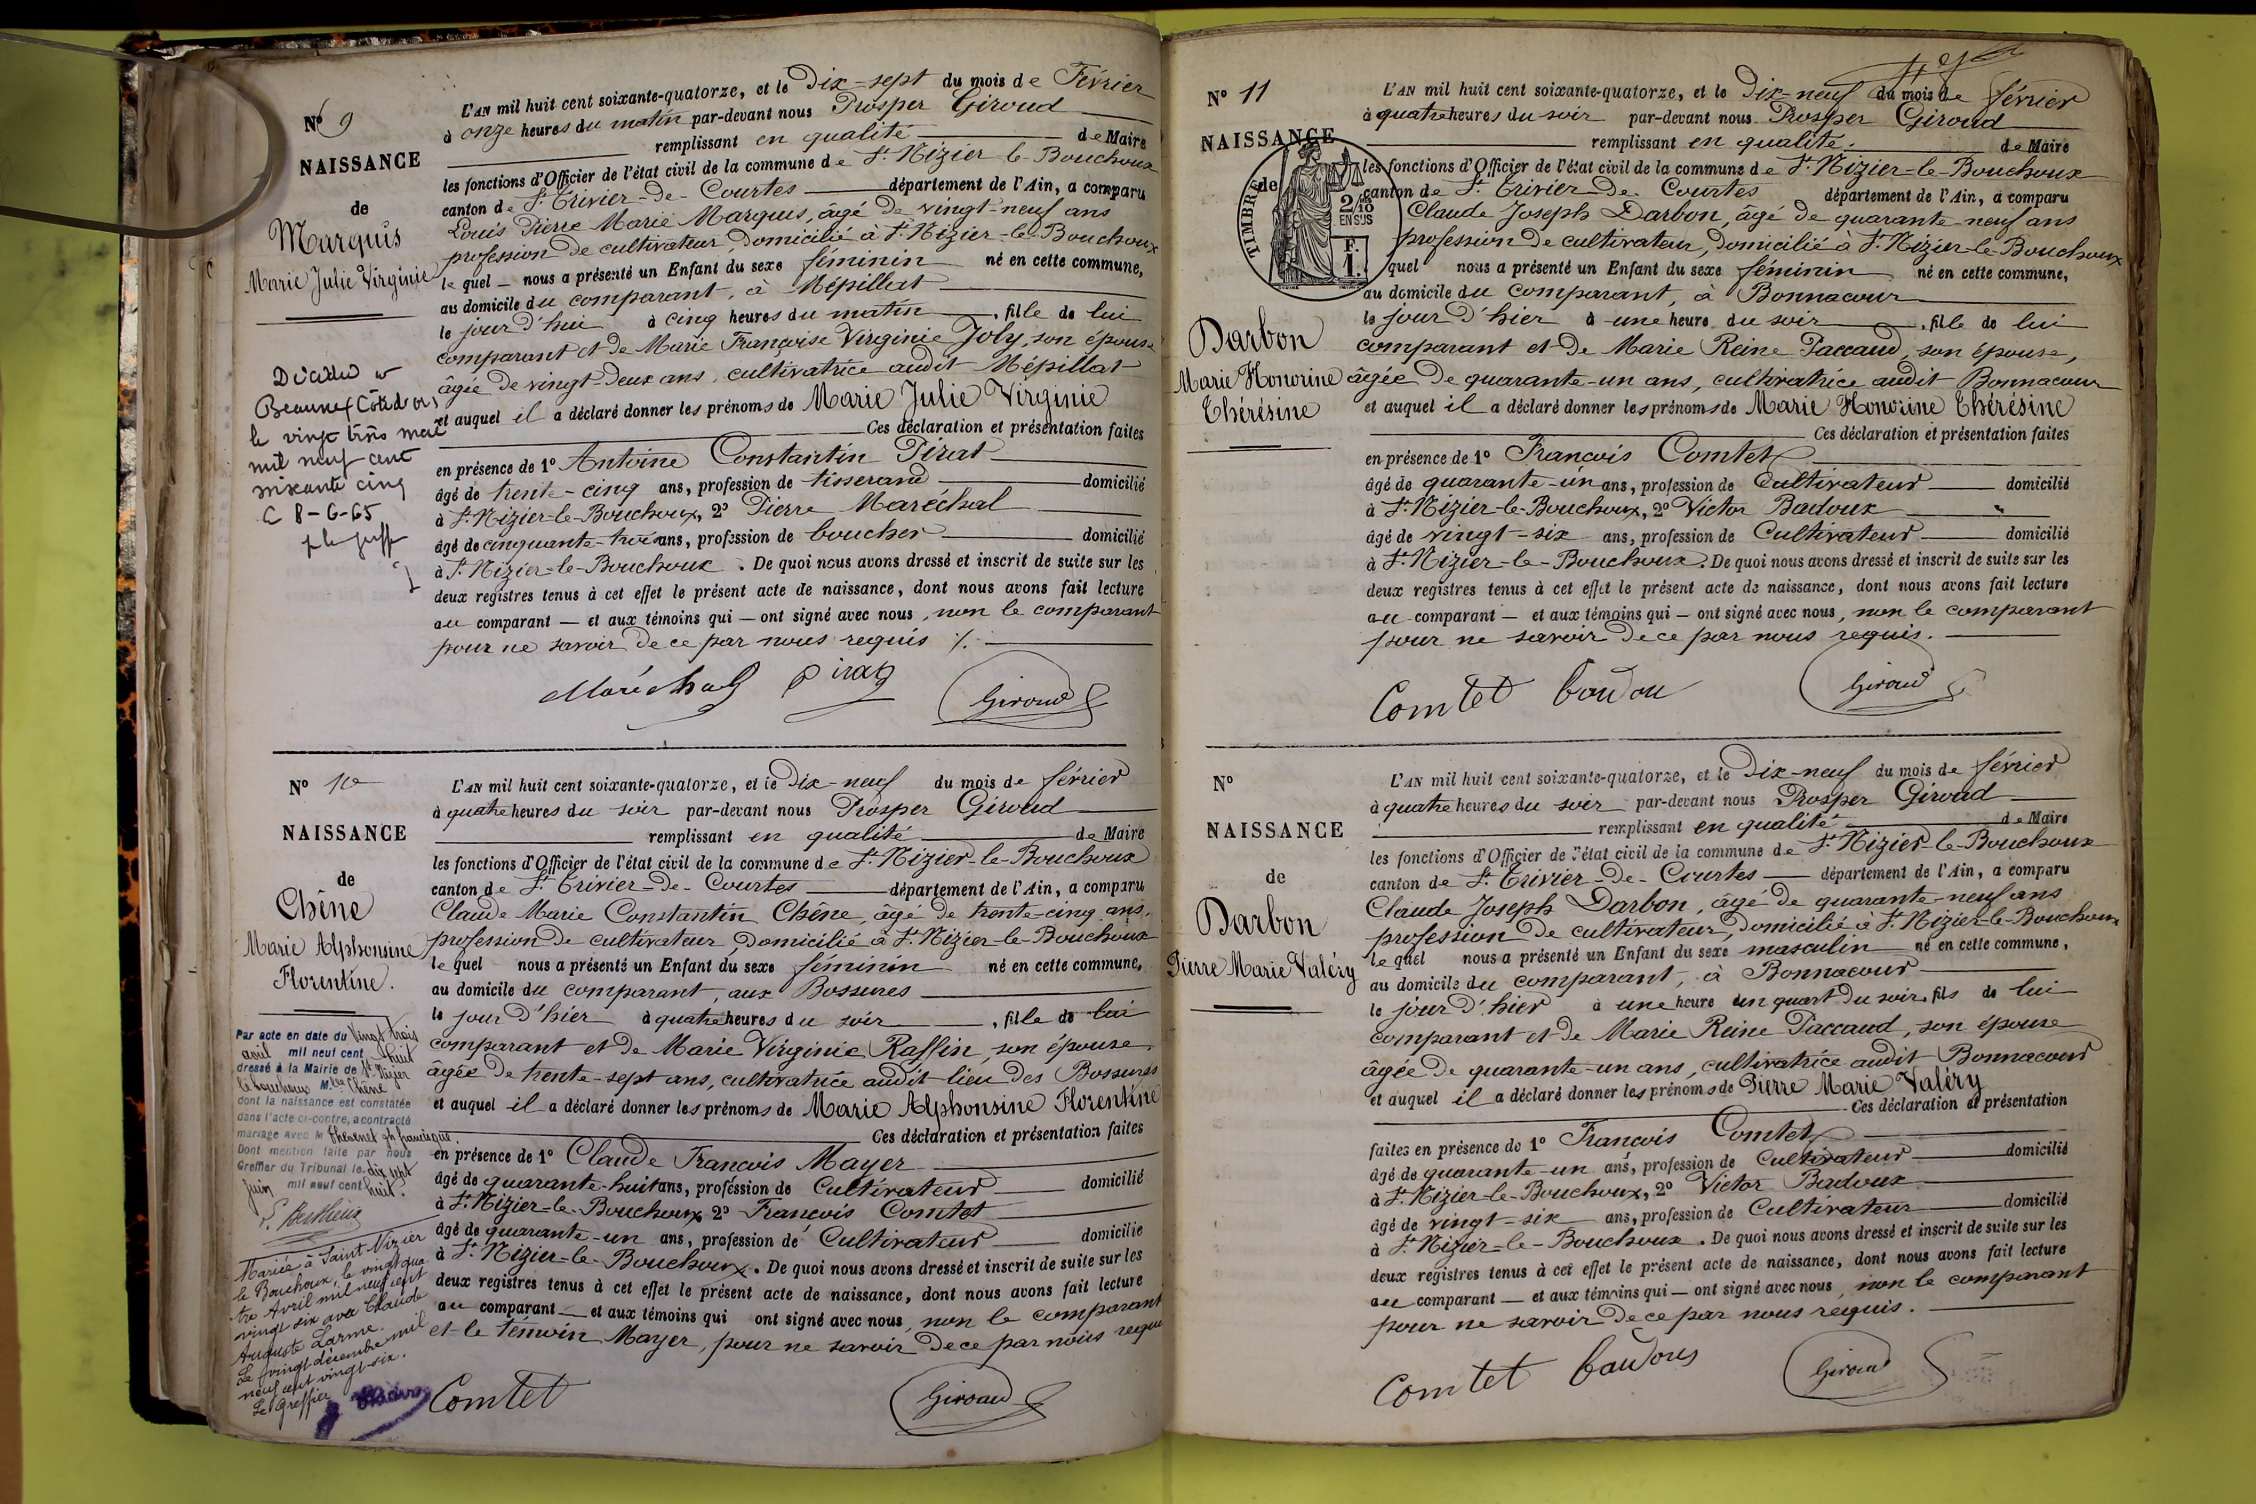 Nº 9
NAISSANCE
de
Marquis
Marie Julie Virginie
Décédée à
Beaune (Côte d'or)
le vingt trois mai
mil neuf cent
soixante cinq
C 8-6-65
L'AN mil huit cent soixante-quatorze, et le Dix-sept du mois de Février
à onze heures du matin par-devant nous Prosper Giroud
remplissant en qualité de Maire
les fonctions d'Officier de l'état civil de la commune de St Nizier-le-Bouchoux
canton de St Trivier-de-Courtes département de l'Ain, a comparu
Louis Pierre Marie Marquis, âgé de vingt-neuf ans
profession de cultivateur domicilié à St Nizier-le-Bouchoux
le quel nous a présenté un Enfant du sexe féminin né en cette commune,
au domicile du comparant, à Mépillat
le jour d'hui à cinq heures du matin, fille de lui
comparant et de Marie Françoise Virginie Joly, son épouse
âgée de vingt-deux ans, cultivatrice audit Mépillat
et auquel il a déclaré donner les prénoms de Marie Julie Virginie
Ces déclaration et présentation faites
en présence de 1º Antoine Constantin Pirat
âgé de trente-cinq ans, profession de tisserand domicilié
à St Nizier-le-Bouchoux, 2º Pierre Maréchal
âgé de cinquante-trois ans, profession de boucher domicilié
à St Nizier-le-Bouchoux. De quoi nous avons dressé et inscrit de suite sur les
deux registres tenus à cet effet le présent acte de naissance, dont nous avons fait lecture
au comparant — et aux témoins qui — ont signé avec nous, non le comparant
pour ne savoir de ce par nous requis %.
Maréchal Pirat Giroud
Nº 10
NAISSANCE
de
Chêne
Marie Alphonsine
Florentine.
Par acte en date du vingt trois
avril mil neuf cent huit
dressé à la Mairie de St Nizier
le Bouchoux Mlle Chêne
dont la naissance est constatée
dans l'acte ci-contre, a contracté
mariage avec M Thévenet jh francisque.
Dont mention faite par nous
Greffier du Tribunal le dix sept
Juin mil neuf cent huit.
Mariée à Saint Nizier
le Bouchoux, le vingt qua
tre Avril mil neuf cent
vingt six avec Claude
Auguste Larme.
Le vingt décembre mil
neuf cent vingt-six.
Le Greffier
L'AN mil huit cent soixante-quatorze, et le Dix-neuf du mois de février
à quatre heures du soir par-devant nous Prosper Giroud
remplissant en qualité de Maire
les fonctions d'Officier de l'état civil de la commune de St Nizier-le-Bouchoux
canton de St Trivier-de-Courtes département de l'Ain, a comparu
Claude Marie Constantin Chêne, âgé de trente-cinq ans,
profession de cultivateur, domicilié à St Nizier-le-Bouchoux
le quel nous a présenté un Enfant du sexe féminin né en cette commune,
au domicile du comparant, aux Bossures
le jour d'hier à quatre heures du soir, fille de lui
comparant et de Marie Virginie Raffin, son épouse,
âgée de trente-sept ans, cultivatrice audit lieu des Bossures
et auquel il a déclaré donner les prénoms de Marie Alphonsine Florentine
Ces déclaration et présentation faites
en présence de 1º Claude François Mayer
âgé de quarante-huit ans, profession de Cultivateur domicilié
à St Nizier-le-Bouchoux, 2º François Comtet
âgé de quarante-un ans, profession de Cultivateur domicilié
à St Nizier-le-Bouchoux. De quoi nous avons dressé et inscrit de suite sur les
deux registres tenus à cet effet le présent acte de naissance, dont nous avons fait lecture
au comparant — et aux témoins qui ont signé avec nous, non le comparant
et le témoin Mayer, pour ne savoir de ce par nous requis
Comtet Giroud
Nº 11
NAISSANCE
de
TIMBRE
2/10
EN SUS
F.
1.
Darbon
Marie Honorine
Thérésine
L'AN mil huit cent soixante-quatorze, et le Dix-neuf du mois de février
à quatre heures du soir par-devant nous Prosper Giroud
remplissant en qualité de Maire
les fonctions d'Officier de l'état civil de la commune de St Nizier-le-Bouchoux
canton de St Trivier-de-Courtes département de l'Ain, a comparu
Claude Joseph Darbon, âgé de quarante-neuf ans
profession de cultivateur, domicilié à St Nizier-le-Bouchoux
quel nous a présenté un Enfant du sexe féminin né en cette commune,
au domicile du comparant, à Bonnacour
le jour d'hier à une heure du soir, fille de lui
comparant et de Marie Reine Paccaud, son épouse,
âgée de quarante-un ans, cultivatrice audit Bonnacour
et auquel il a déclaré donner les prénoms de Marie Honorine Thérésine
Ces déclaration et présentation faites
en présence de 1º François Comtet
âgé de quarante-un ans, profession de Cultivateur domicilié
à St Nizier-le-Bouchoux, 2º Victor Badoux
âgé de vingt-six ans, profession de Cultivateur domicilié
à St Nizier-le-Bouchoux. De quoi nous avons dressé et inscrit de suite sur les
deux registres tenus à cet effet le présent acte de naissance, dont nous avons fait lecture
au comparant — et aux témoins qui — ont signé avec nous, non le comparant
pour ne savoir de ce par nous requis.
Comtet Giroud
Nº
NAISSANCE
de
Darbon
Pierre Marie Valéry
L'AN mil huit cent soixante-quatorze, et le Dix-neuf du mois de février
à quatre heures du soir par-devant nous Prosper Giroud
remplissant en qualité de Maire
les fonctions d'Officier de l'état civil de la commune de St Nizier-le-Bouchoux
canton de St Trivier-de-Courtes département de l'Ain, a comparu
Claude Joseph Darbon, âgé de quarante-neuf ans
profession de cultivateur, domicilié à St Nizier-le-Bouchoux
le quel nous a présenté un Enfant du sexe masculin né en cette commune,
au domicile du comparant, à Bonnacour
le jour d'hier à une heure un quart du soir, fils de lui
comparant et de Marie Reine Paccaud, son épouse
âgée de quarante-un ans, cultivatrice audit Bonnacour
et auquel il a déclaré donner les prénoms de Pierre Marie Valéry
Ces déclaration et présentation
faites en présence de 1º François Comtet
âgé de quarante-un ans, profession de Cultivateur domicilié
à St Nizier-le-Bouchoux, 2º Victor Badoux
âgé de vingt-six ans, profession de Cultivateur domicilié
à St Nizier-le-Bouchoux. De quoi nous avons dressé et inscrit de suite sur les
deux registres tenus à cet effet le présent acte de naissance, dont nous avons fait lecture
au comparant — et aux témoins qui — ont signé avec nous, non le comparant
pour ne savoir de ce par nous requis.
Comtet Giroud